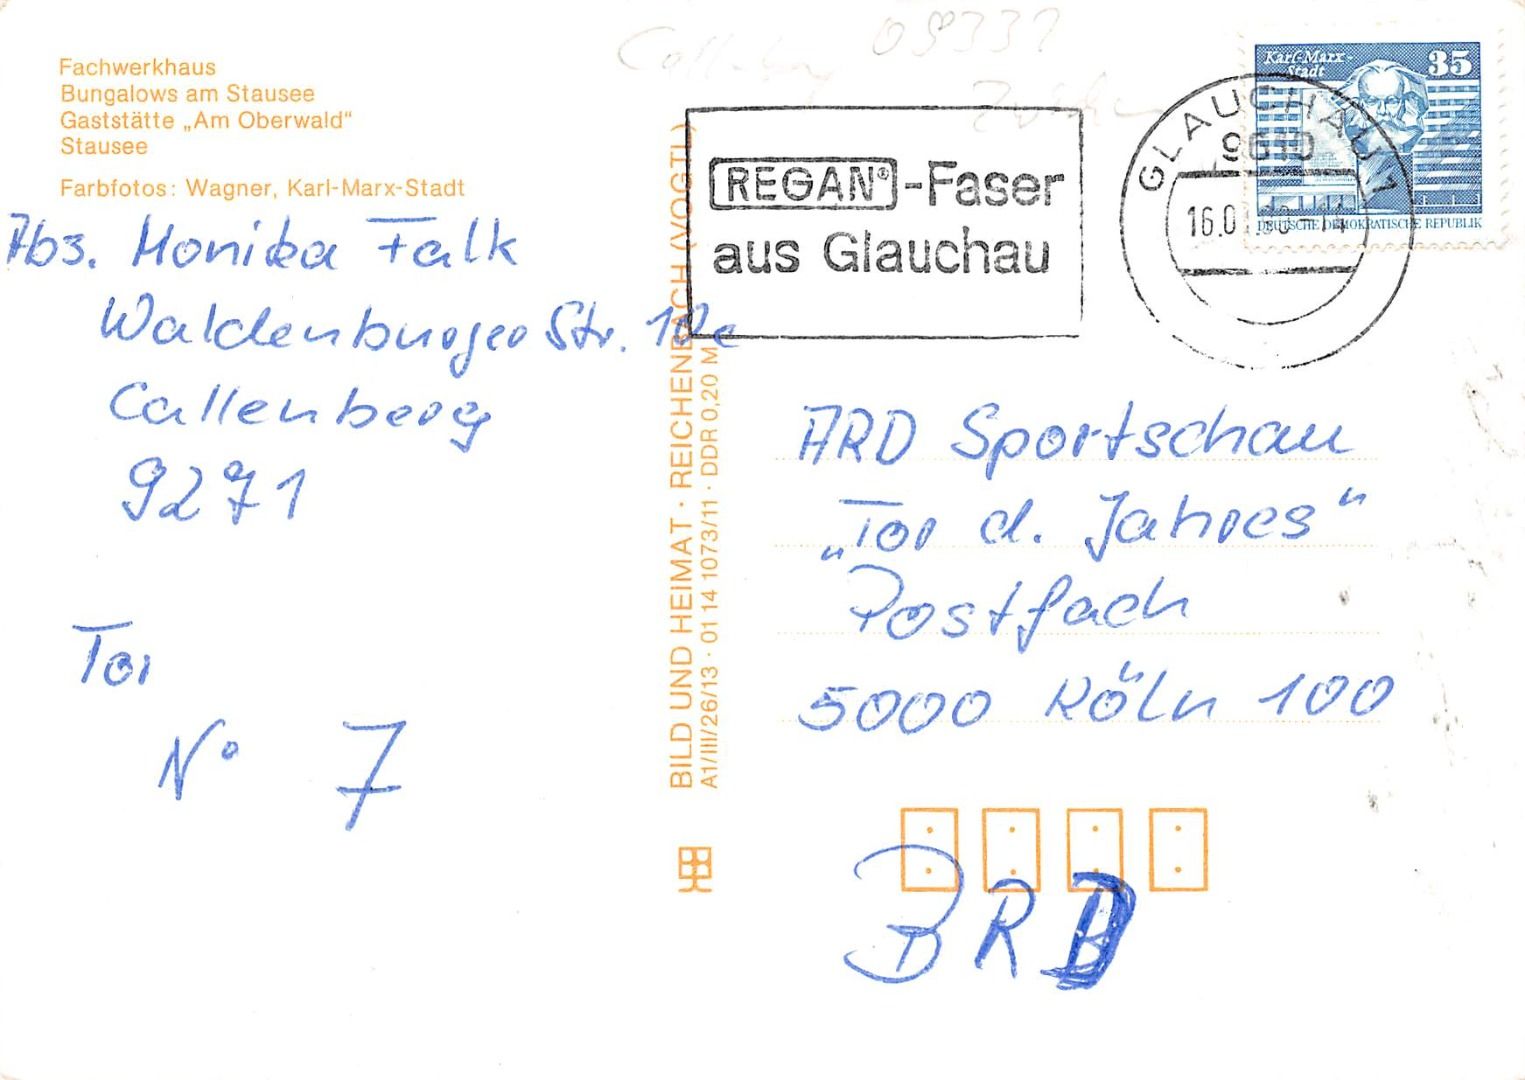 Fachwerkhaus
Bungalows am Stausee
Gaststätte „Am Oberwald“
Stausee
Farbfotos: Wagner, Karl-Marx-Stadt
Abs. Monika Falk
Waldenburger Str.
Callenberg
9271
Tor
N° 7
BILD UND HEIMAT · REICHENBACH (VOGTL)
A1/III/26/13 · 01 14 1073/11 · DDR 0,20 M
REGAN® -Faser
aus Glauchau
GLAUCHAU 1
9610
16.0
Karl-Marx-
Stadt
35
DEUTSCHE DEMOKRATISCHE REPUBLIK
ARD Sportschau
„Tor d. Jahres“
Postfach
5000 Köln 100
BRD